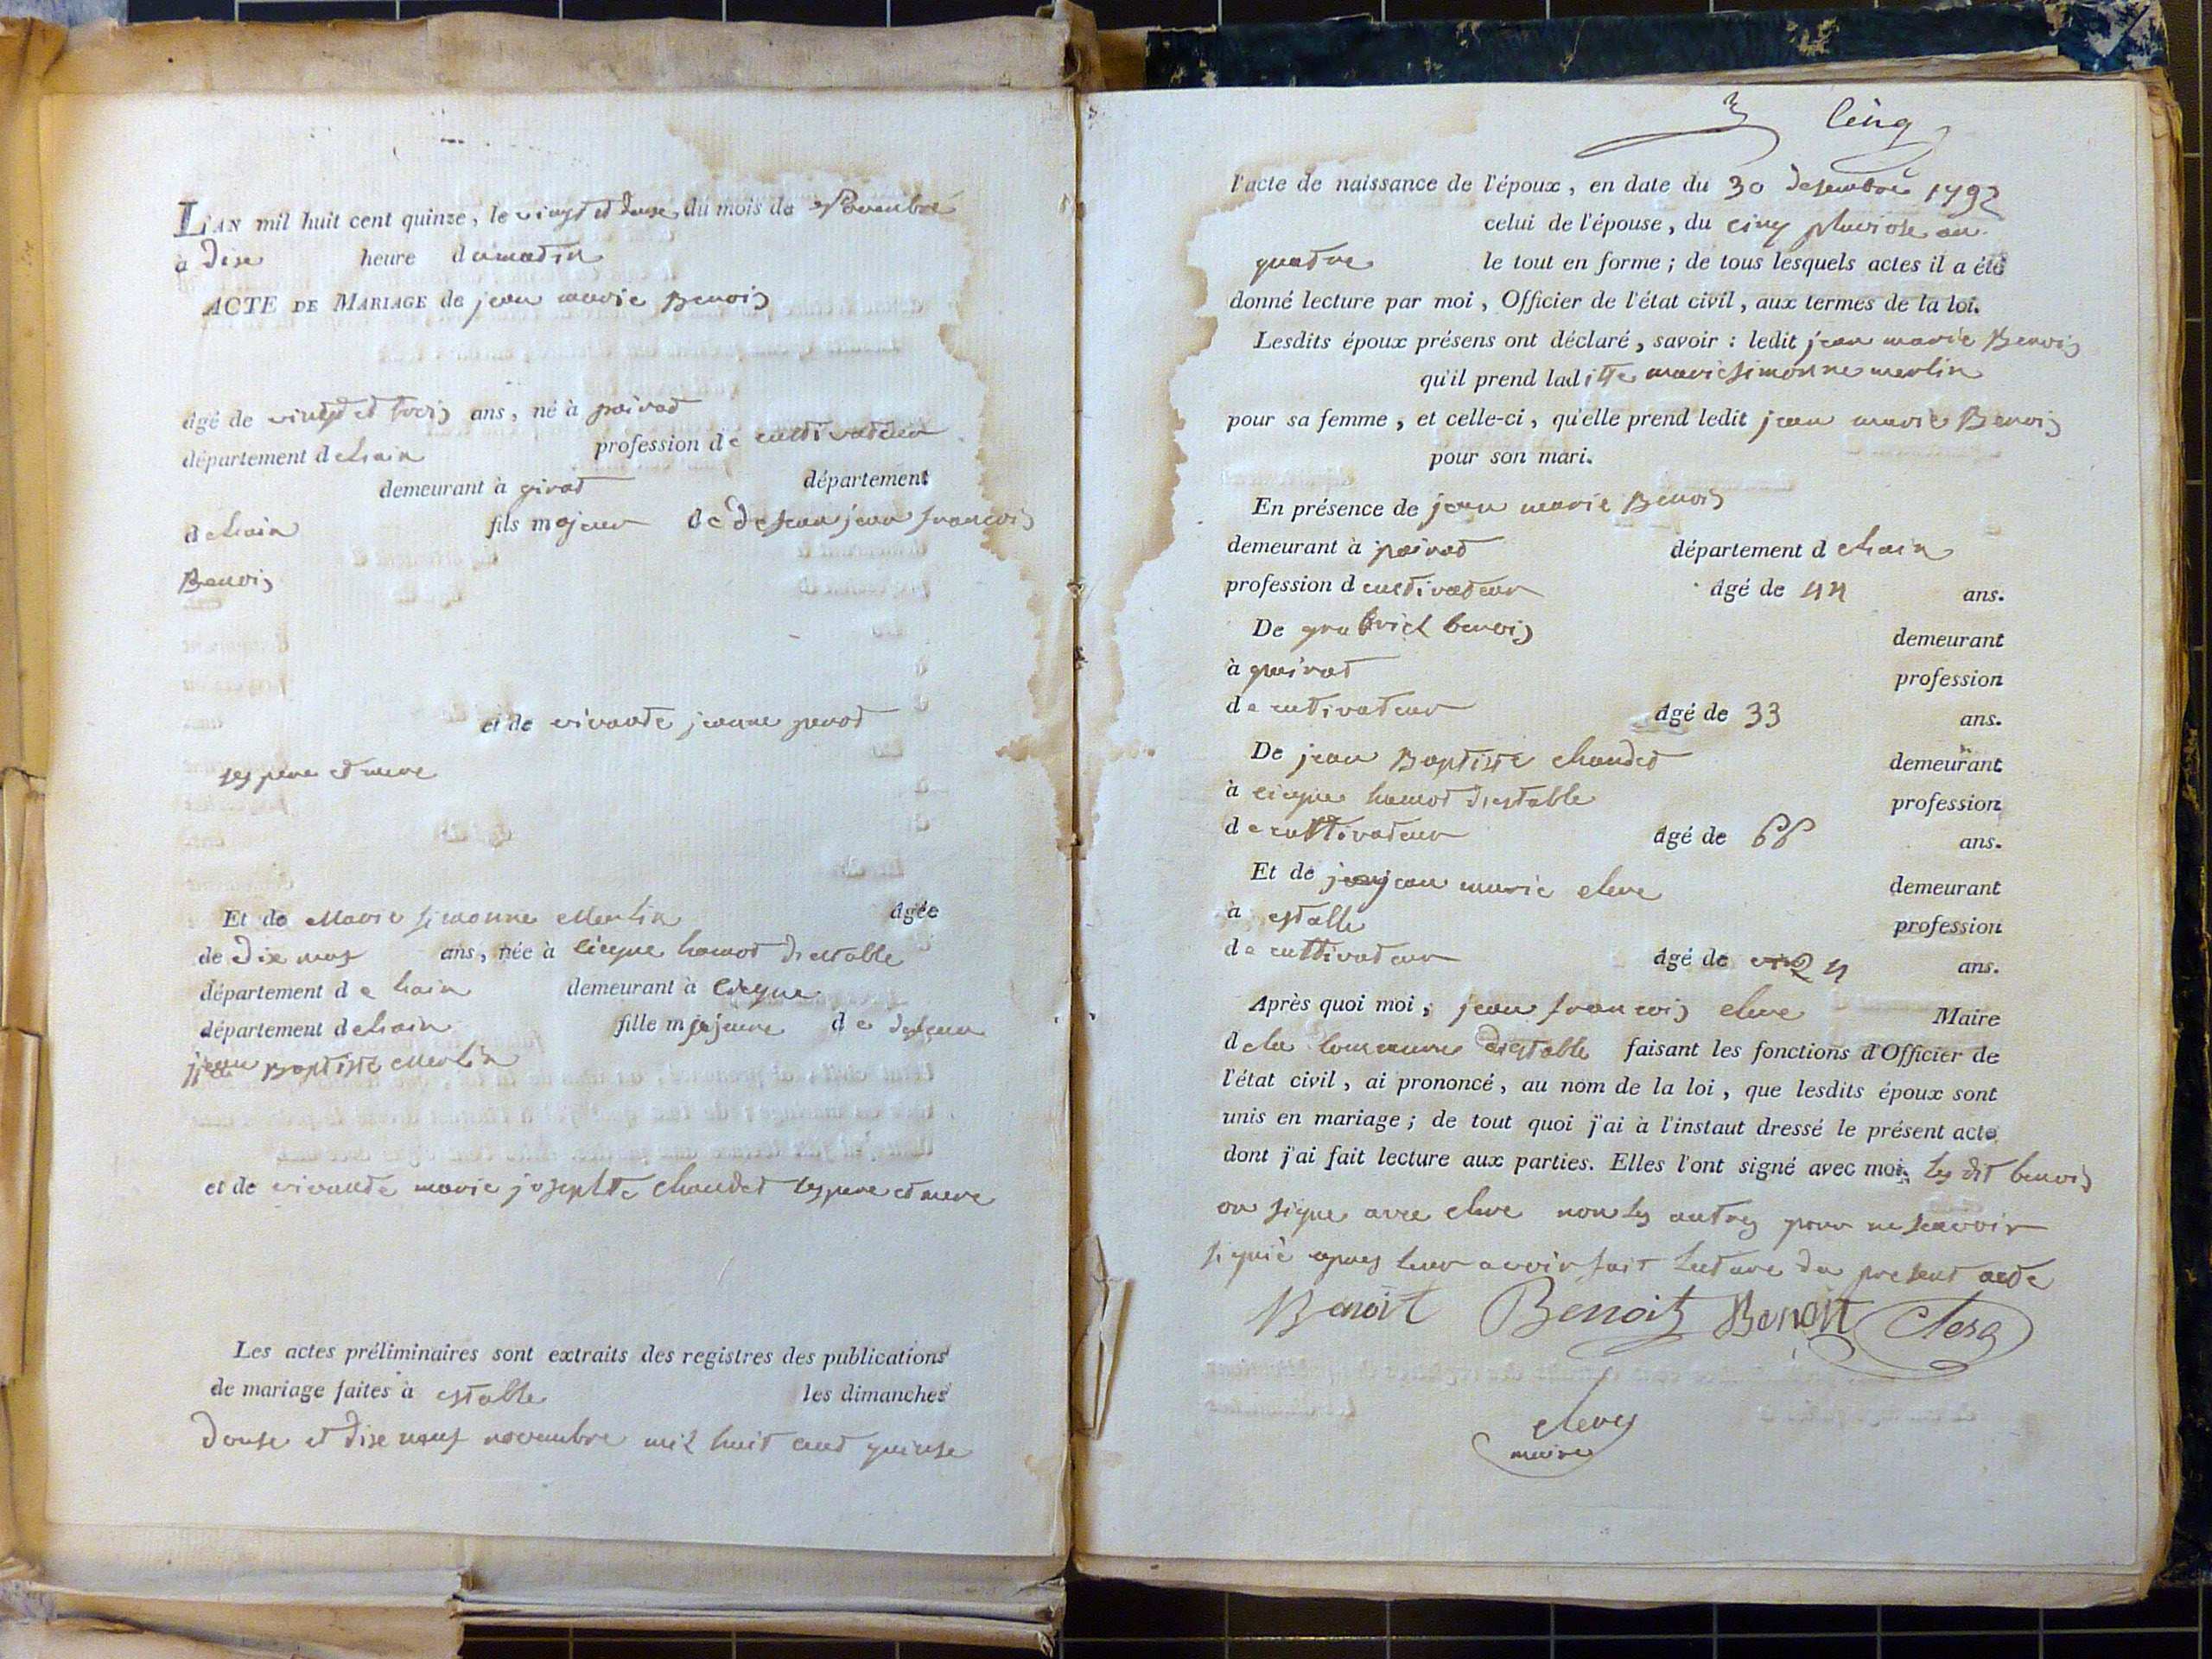 L'AN mil huit cent quinze, le vingt et douse du mois de Novembre
à dise heure dumatin
ACTE DE MARIAGE de jean marie Benois
âgé de vingt et trois ans, né à poirat
département delain profession de cultivateur
demeurant à département
delain fils majeur de defeun jean francois
Benois
et de vivante jeanne
ses pere et mere
Et de Marie simonne Merlin âgée
de dix nuf ans, née à hamot destable
département de lain demeurant à
département delain fille majeure de defeun
jean Baptiste Merlin
et de vivante marie josephte chaudet ses pere et mere
Les actes préliminaires sont extraits des registres des publications
de mariage faites à estable les dimanches
douse et dise neuf novembre mil huit cent quinse
3 Cinq
l'acte de naissance de l'époux, en date du 30 desembre 1792
celui de l'épouse, du cinq pluviose an
quatre le tout en forme ; de tous lesquels actes il a été
donné lecture par moi, Officier de l'état civil, aux termes de la loi.
Lesdits époux présens ont déclaré, savoir : ledit jean marie Benois
qu'il prend laditte marie simonne merlin
pour sa femme, et celle-ci, qu'elle prend ledit jean marie Benois
pour son mari.
En présence de jean marie Benois
demeurant à poirat département d elain
profession d cultivateur âgé de 44 ans.
De gabriel benois demeurant
à poirat profession
de cutivateur âgé de 33 ans.
De jean Baptiste chaudet demeurant
à hamot destable profession
de cultivateur âgé de 66 ans.
Et de jean marie clerc demeurant
à estable profession
de cultivateur âgé de 24 ans.
Après quoi moi, jean francois clerc Maire
dela commune destable faisant les fonctions d'Officier de
l'état civil, ai prononcé, au nom de la loi, que lesdits époux sont
unis en mariage ; de tout quoi j'ai à l'instaut dressé le présent acte
dont j'ai fait lecture aux parties. Elles l'ont signé avec moi. les dit benois
on signe avec clerc non les autres pour ne scavoir
signé apres leur avoir fait lecture du present acte
Benoit Benoit Benoit Clerq
clerc
maire